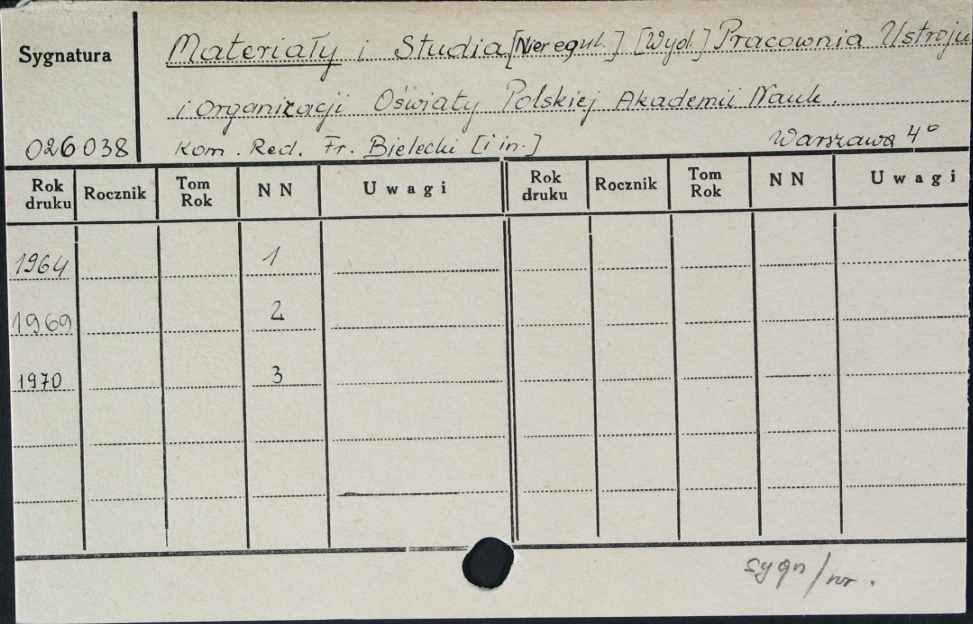 Sygnatura
Materiały i Studia [Nieregul.] [Wyd.] Pracownia Ustroju
i Organizacji Oświaty Polskiej Akademii Nauk.
026038 Kom. Red. Fr. Bielecki [i in.] Warszawa 4°
Rok druku Rocznik Tom Rok NN Uwagi Rok druku Rocznik Tom Rok NN Uwagi
1964 1
1969 2
1970 3
sygn/nr.